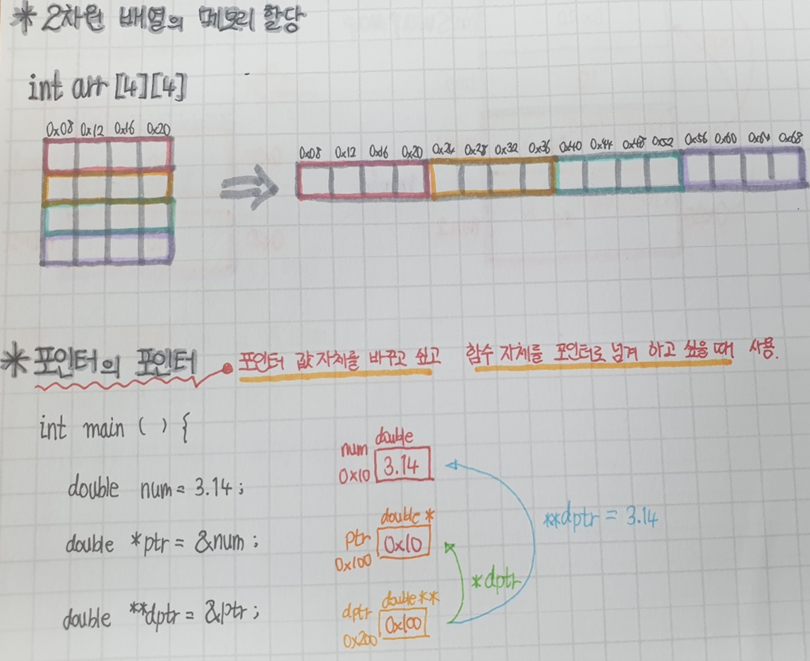 * 2차원 배열의 메모리 할당
int arr [4][4]
0x08 0x12 0x16 0x20
0x08 0x12 0x16 0x20 0x24 0x28 0x32 0x36 0x40 0x44 0x48 0x52 0x56 0x60 0x64 0x68
* 포인터의 포인터
포인터 값 자체를 바꾸고 싶고 함수 자체를 포인터로 넘겨 하고 싶을 때 사용.
int main ( ) {
double num = 3.14 ;
double *ptr = &num ;
double **dptr = &ptr ;
num double
0x10 3.14
double *
ptr 0x10
0x100
dptr double **
0x200 0x100
*dptr
**dptr = 3.14